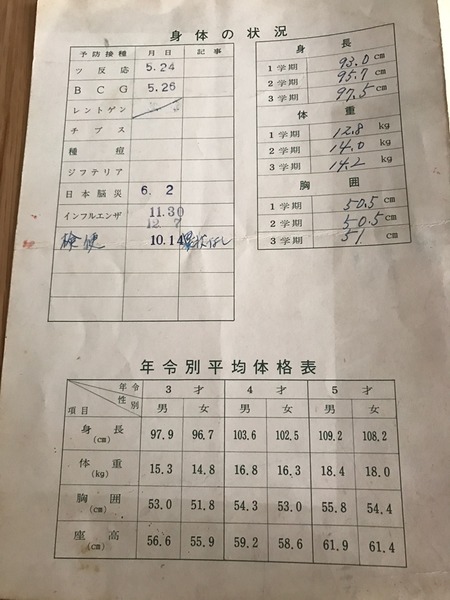 身体の状況
予防接種 月日 記事
ツ反応 5.24
BCG 5.26
レントゲン
チブス
種痘
ジフテリア
日本脳災 6. 2
インフルエンザ 11.30
12. 7
検便 10.14 異状なし
身長
1学期 93.0 cm
2学期 95.7 cm
3学期 97.5 cm
体重
1学期 12.8 kg
2学期 14.0 kg
3学期 14.2 kg
胸囲
1学期 50.5 cm
2学期 50.5 cm
3学期 51 cm
年令別平均体格表
年令 3才 4才 5才
項目 性別 男 女 男 女 男 女
身長 (cm) 97.9 96.7 103.6 102.5 109.2 108.2
体重 (kg) 15.3 14.8 16.8 16.3 18.4 18.0
胸囲 (cm) 53.0 51.8 54.3 53.0 55.8 54.4
座高 (cm) 56.6 55.9 59.2 58.6 61.9 61.4